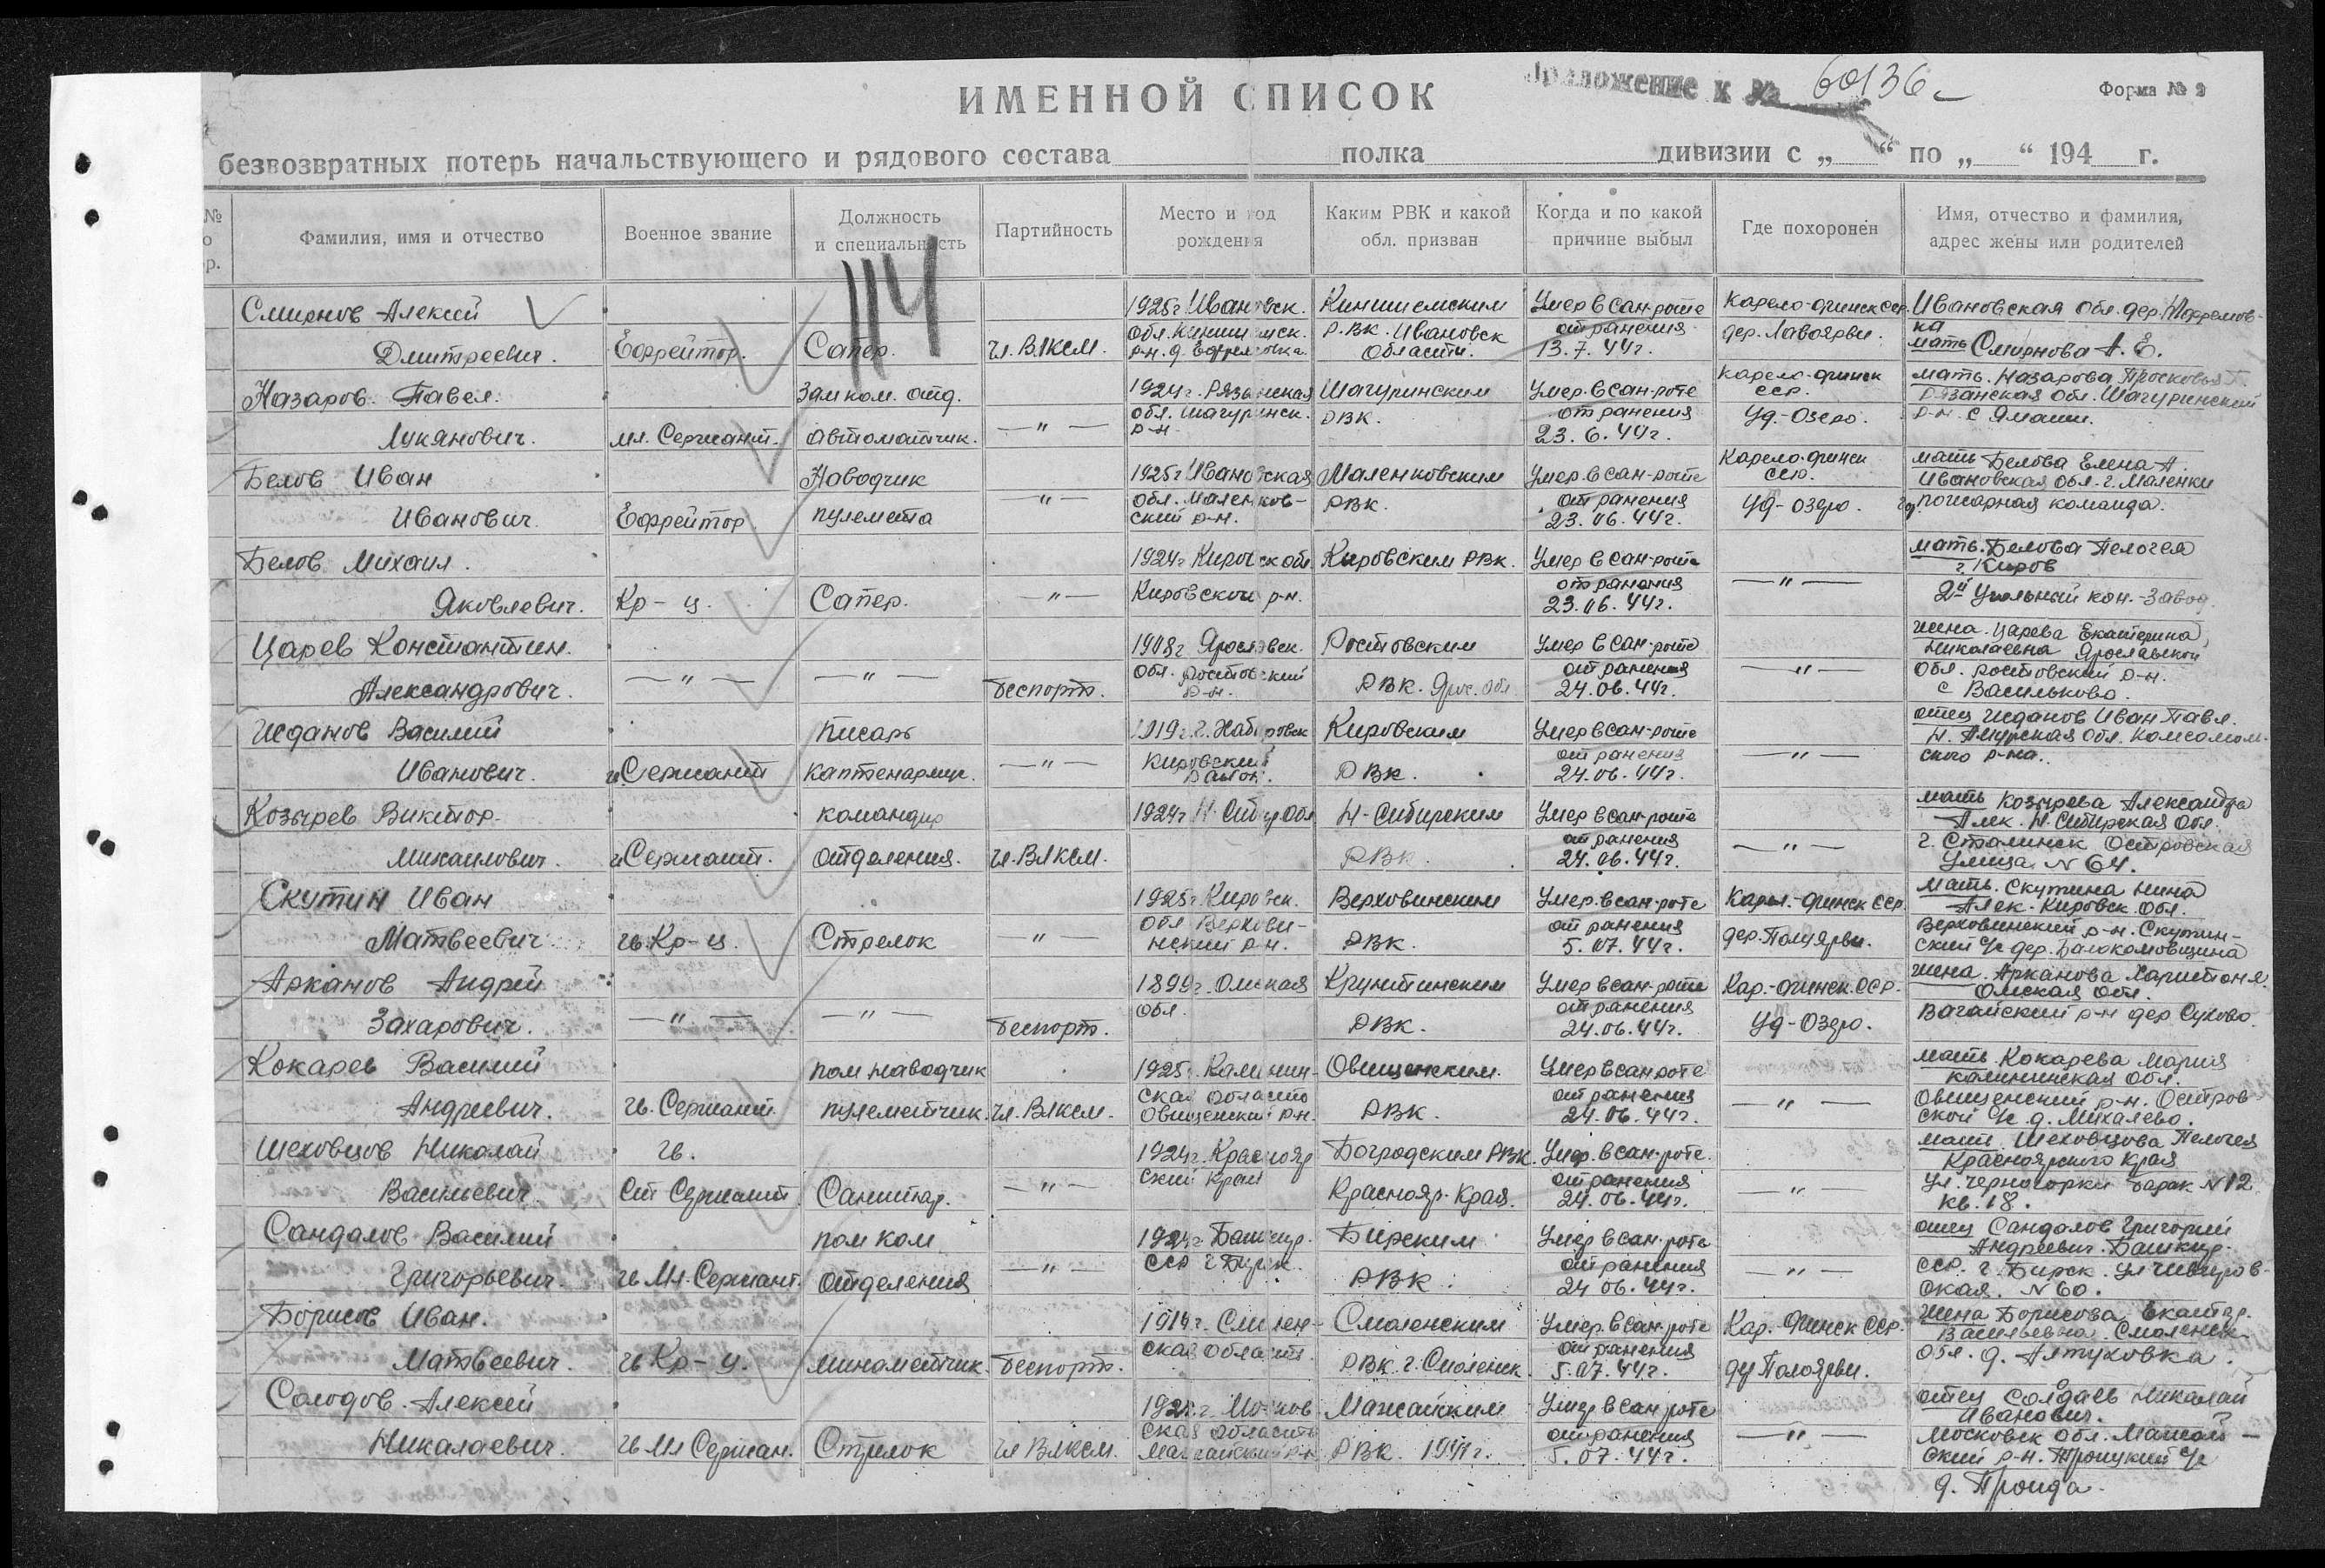 Приложение к № 60136
Форма № 2
ИМЕННОЙ СПИСОК
безвозвратных потерь начальствующего и рядового состава полка дивизии с „ “ по „ “ 194 г.
№ Фамилия, имя и отчество Военное звание Должность и специальность Партийность Место и год рождения Каким РВК и какой обл. призван Когда и по какой причине выбыл Где похоронен Имя, отчество и фамилия, адрес жены или родителей
114
Смирнов Алексей 1925г Ивановск. Кинишемским Умер в Сан-роте Карело-финск сср Ивановская обл. дер.
Обл. Кинишемск. Р.ВК. Ивановск от ранения дер. Лавоярви.
Дмитреевич. Ефрейтор. Сапер. чл. ВЛКСМ. р-н. д. Ефремовка Области. 13.7.44г. мать Смирнова А. Е.
Назаров Павел. Зам ком. отд. 1924г. Рязанская Шатуринским Умер. в сан-роте Карело-финск сср. мать. Назарова Просковья
обл. Шатуринск. РВК. от ранения Уд-Озеро. Рязанская обл. Шатуринский
Лукянович. мл. Сержант. автоматчик. — " — р-н 23.6.44г. р-н. с Ямаши.
Белов Иван Наводчик 1925г Ивановская Маленковским Умер в сан-роте Карело-финск сср. мать Белова Елена А.
— " — обл. Маленков- РВК. от ранения Уд-озеро. Ивановская обл. г. Маленки
Иванович. Ефрейтор пулемета ский р-н. 23.06.44г. пожарная команда.
Белов Михаил. 1924г Кировск обл Кировским РВК. Умер в сан-роте мать. Белова Пелогея
г. Киров
Яковлевич. Кр-ц. Сапер. — " — Кировской р-н. от ранения — " — 2й Угольный кон.-завод.
23.06.44г.
Царев Константин. 1908г Ярославск. Ростовским Умер в сан-роте жена. Царева Екатерина
Николаевна Ярославской
— " — — " — обл. Ростовский от ранения — " — обл. Ростовский р-н.
Александрович. беспарт. р-н. РВК. Яро. обл 24.06.44г. с Васильково.
Жданов Василий Писарь 1919г. г. Хабаровск Кировским Умер в сан-роте отец Жданов Иван Павл.
Н. Амурская обл. Комсомол-
Иванович. Сержант каптенармус. — " — Кировский район. РВК. от ранения — " — ского р-на.
24.06.44г.
Козырев Виктор. командир 1924г Н-Сибир обл Н-Сибирским Умер в сан-роте мать Козырева Александра
Алек. Н. Сибирская обл.
Михаилович. Сержант. отделения. чл. ВЛКСМ. РВК. от ранения — " — г. Сталинск Островская
24.06.44г. Улица N 64.
Скутин Иван 1925г Кировск. Верховинским Умер. в сан-роте Карел.-финск сср. мать. Скутина Нина
Алек. Кировск. обл.
Матвеевич гв. Кр-ц. Стрелок — " — обл Верхови- от ранения Верховинский р-н. Скутин-
нский р-н. РВК. 5.07.44г. ский с/с дер.
Арканов Андрей 1899г. Омская Крутинским Умер в сан-роте Кар.-финск. сср. жена. Арканова Харитоня.
Омская обл.
Захарович. — " — — " — беспарт. обл. РВК. от ранения Уд-Озеро. Вагайский р-н дер Сухово.
24.06.44г.
Кокарев Василий пом наводчик 1925г. Калинин- Овищенским. Умер в сан роте мать Кокарева Мария
калининская обл.
Андреевич. гв. Сержант пулеметчик. чл. ВЛКСМ. ская область от ранения — " — Овищенский р-н. Остров-
Овищенский р-н. РВК. 24.06.44г. ской с/с д. Михалево.
Шеховцов Николай гв. 1924г. Краснояр Боградским РВК. Умер. в сан-роте. мать Шеховцова Пелогея
ский край Красноярского края
Васильевич Ст Сержант. Санитар. — " — Краснояр. Края. от ранения — " — ул. Черногорки барак N 12
24.06.44г. кв. 18.
Сандалов Василий пом ком 1924г Башкир. Бирским Умер в сан-роте отец Сандалов Григорий
Андреевич. Башкир.
Григорьевич. гв Мл. Сержант. отделения — " — сср г Бирск. РВК. от ранения — " — сср. г. Бирск. ул
24 06.44г. ская. N 60.
Борисов Иван. 1914г. Смолен- Смоленским Умер. в сан-роте Кар. Финск сср. жена Борисова Екатер.
Васильевна. Смоленск.
Матвеевич. гв Кр-ц. минометчик. беспарт. ская област. РВК г. Смоленск. от ранения обл. д. Алтуховка.
5.07.44г.
Солодов. Алексей 1925.г. Москов Можайским Умер в сан роте отец Солдаев Николай
Иванович.
Николаевич. гв Мл Сержан. Стрелок чл ВЛКСМ. ская область РВК. 1941г. от ранения — " — Московск обл. Можай-
Можайский р-н 5.07.44г. ский р-н.